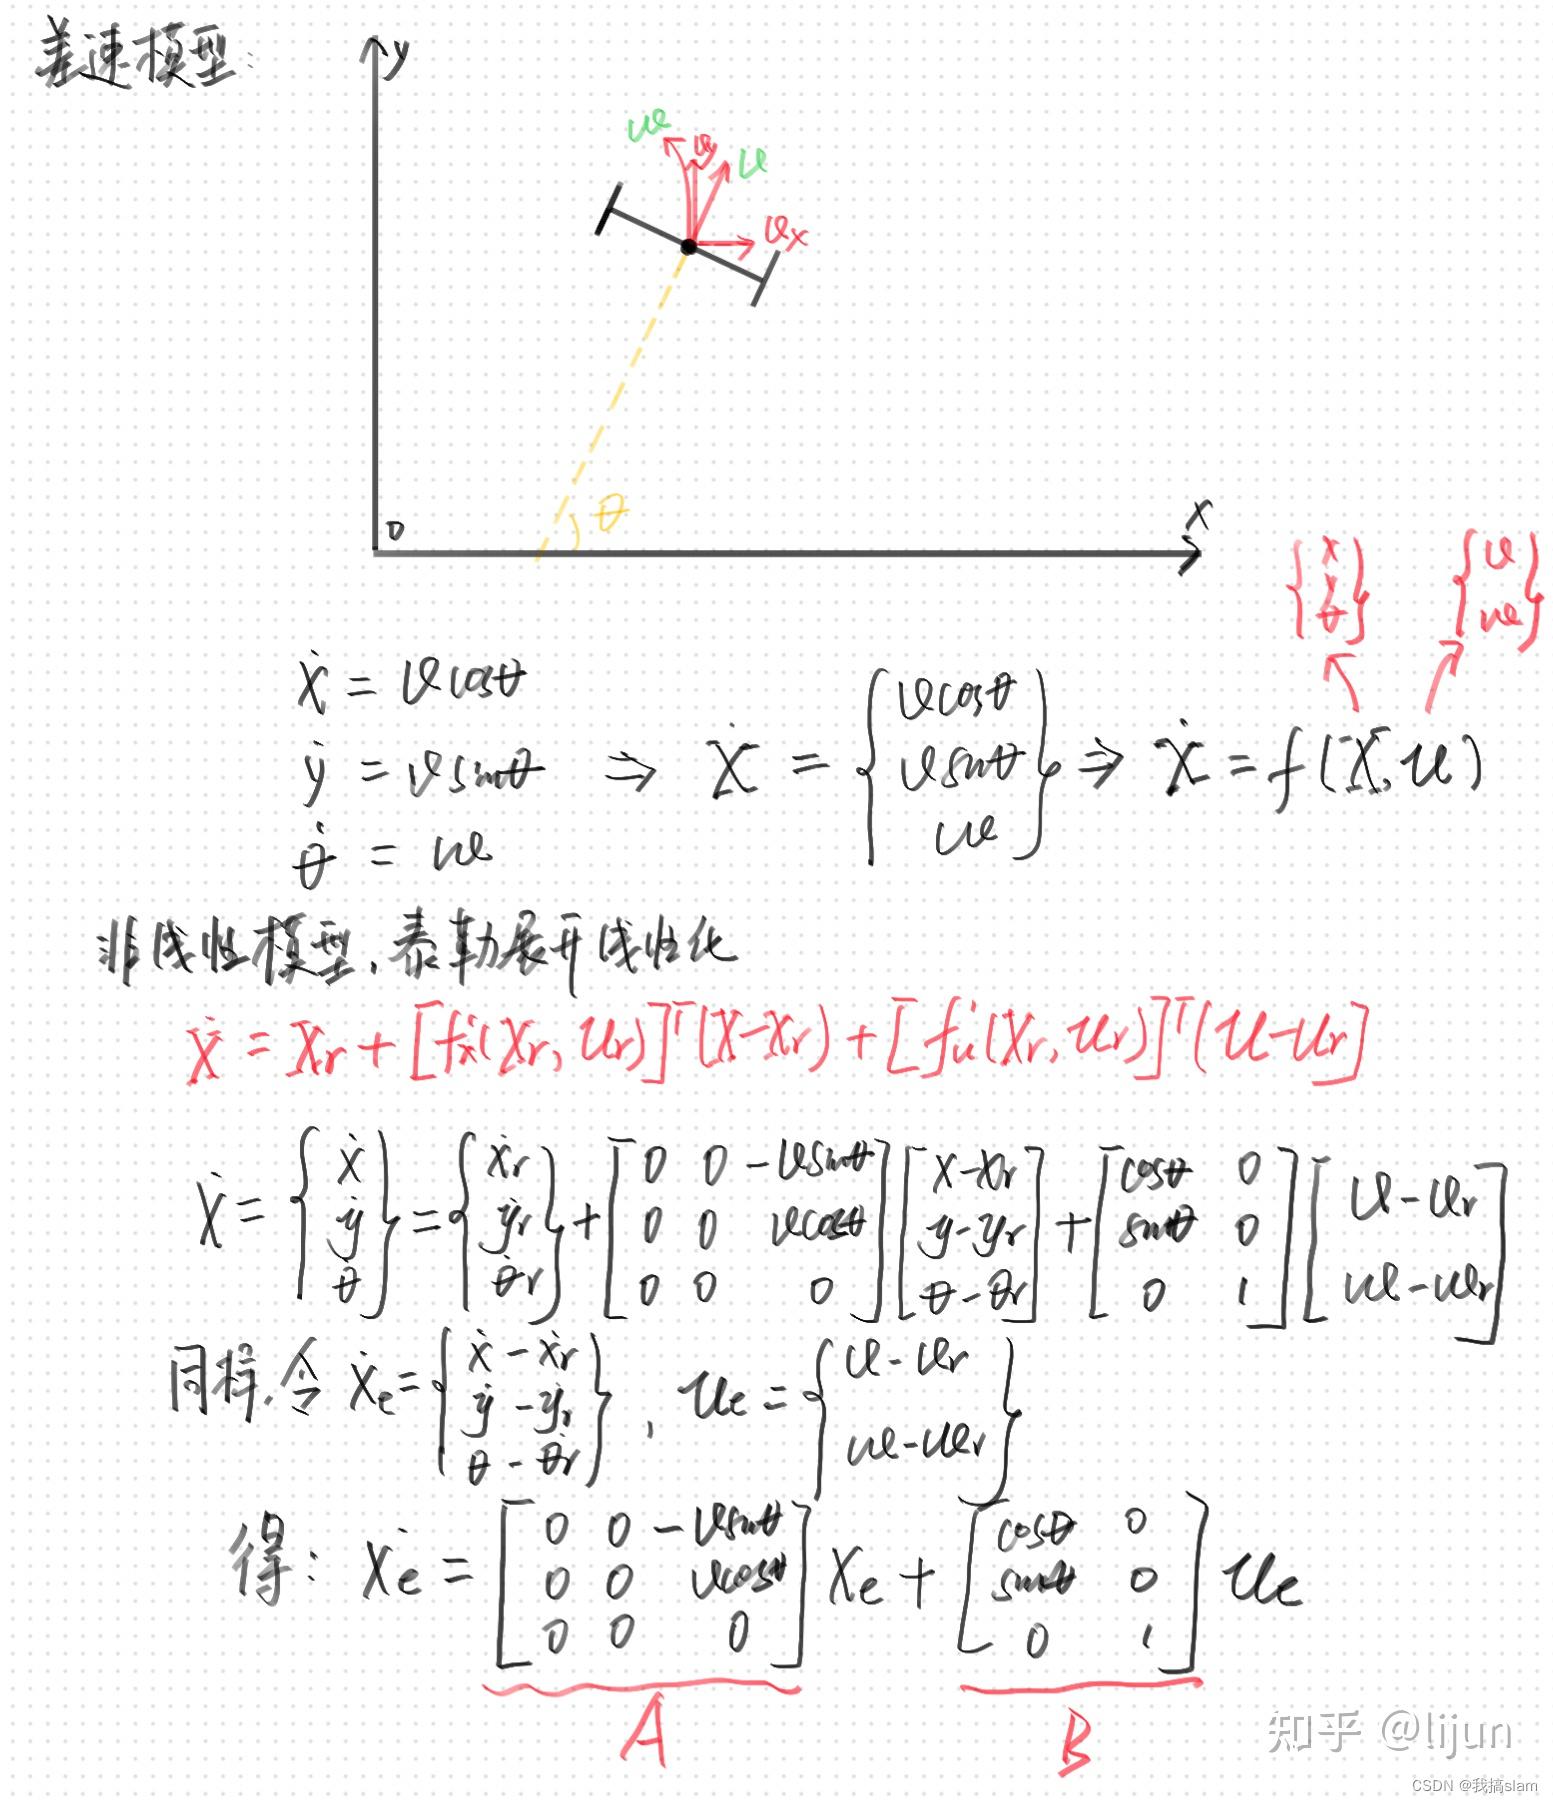 差速模型:
y
ω
v_y
v
v_x
θ
0
x
{x y θ} {v ω}
ẋ = vcosθ
ẏ = vsinθ ⇒ Ẋ = {vcosθ vsinθ ω} ⇒ Ẋ = f(X, u)
θ̇ = ω
非线性模型,泰勒展开线性化
Ẋ = Xr + [fx'(Xr, ur)]ᵀ(X-Xr) + [fu'(Xr, ur)]ᵀ(u-ur]
Ẋ = {ẋ ẏ θ̇} = {ẋr ẏr θ̇r} + [0 0 -vsinθ; 0 0 vcosθ; 0 0 0] [x-xr; y-yr; θ-θr] + [cosθ 0; sinθ 0; 0 1] [v-vr; ω-ωr]
同样,令 Ẋe = {ẋ-ẋr ẏ-ẏr θ̇-θ̇r}, ue = {v-vr ω-ωr}
得: Ẋe = [0 0 -vsinθ; 0 0 vcosθ; 0 0 0] Xe + [cosθ 0; sinθ 0; 0 1] ue
A B
知乎 @lijun
CSDN @我搞slam